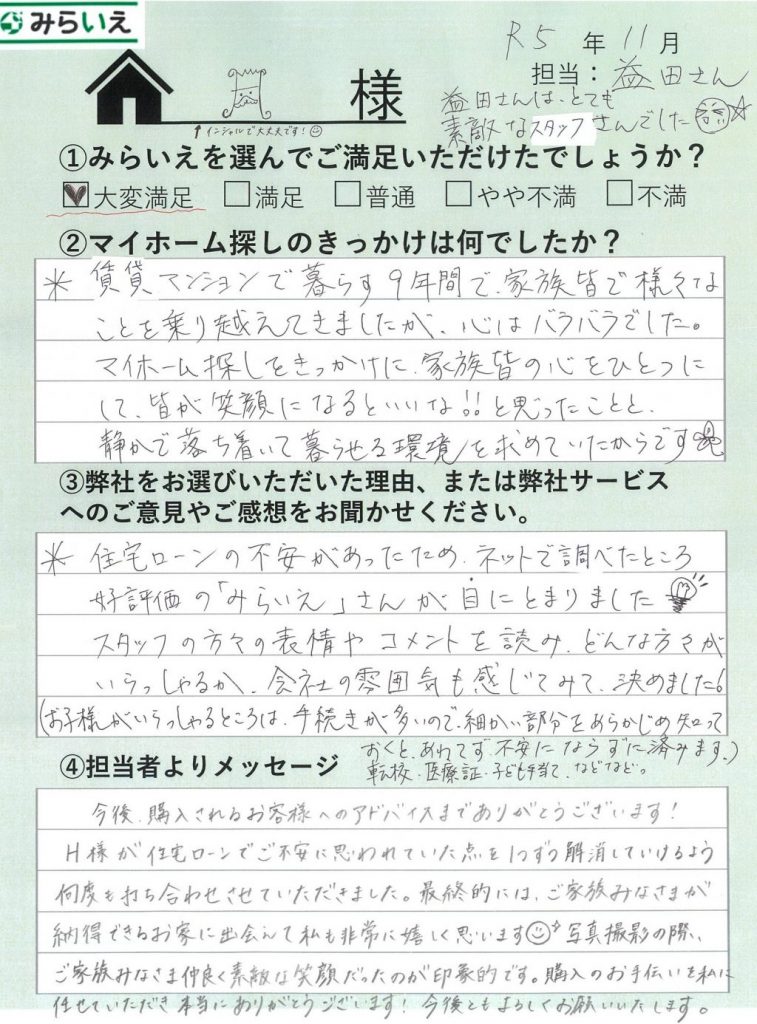 みらいえ
R5年11月
担当：益田さん
様
↑イニシャルで大丈夫です！
益田さんは、とても
素敵なスタッフさんでした
①みらいえを選んでご満足いただけたでしょうか？
大変満足 満足 普通 やや不満 不満
②マイホーム探しのきっかけは何でしたか？
＊賃貸マンションで暮らす9年間で、家族皆で様々な
ことを乗り越えてきましたが、心はバラバラでした。
マイホーム探しをきっかけに、家族皆の心をひとつに
して、皆が笑顔になるといいな!!と思ったことと、
静かで落ち着いて暮らせる環境を求めていたからです
③弊社をお選びいただいた理由、または弊社サービス
へのご意見やご感想をお聞かせください。
＊住宅ローンの不安があったため、ネットで調べたところ
好評価の「みらいえ」さんが目にとまりました
スタッフの方々の表情やコメントを読み、どんな方々が
いらっしゃるか、会社の雰囲気も感じてみて、決めました!
(お子様がいらっしゃるところは、手続きが多いので、細かい部分をあらかじめ知って
おくと、あわてず不安にならずに済みます。)
転校・医療証・子ども手当て、などなど。
④担当者よりメッセージ
今後、購入されるお客様へのアドバイスまでありがとうございます！
H様が住宅ローンでご不安に思われていた点を1つずつ解消していけるよう
何度も打ち合わせさせていただきました。最終的には、ご家族みなさまが
納得できるお家に出会えて私も非常に嬉しく思います 写真撮影の際、
ご家族みなさま仲良く素敵な笑顔だったのが印象的です。購入のお手伝いを私に
任せていただき本当にありがとうございます！今後ともよろしくお願いいたします。